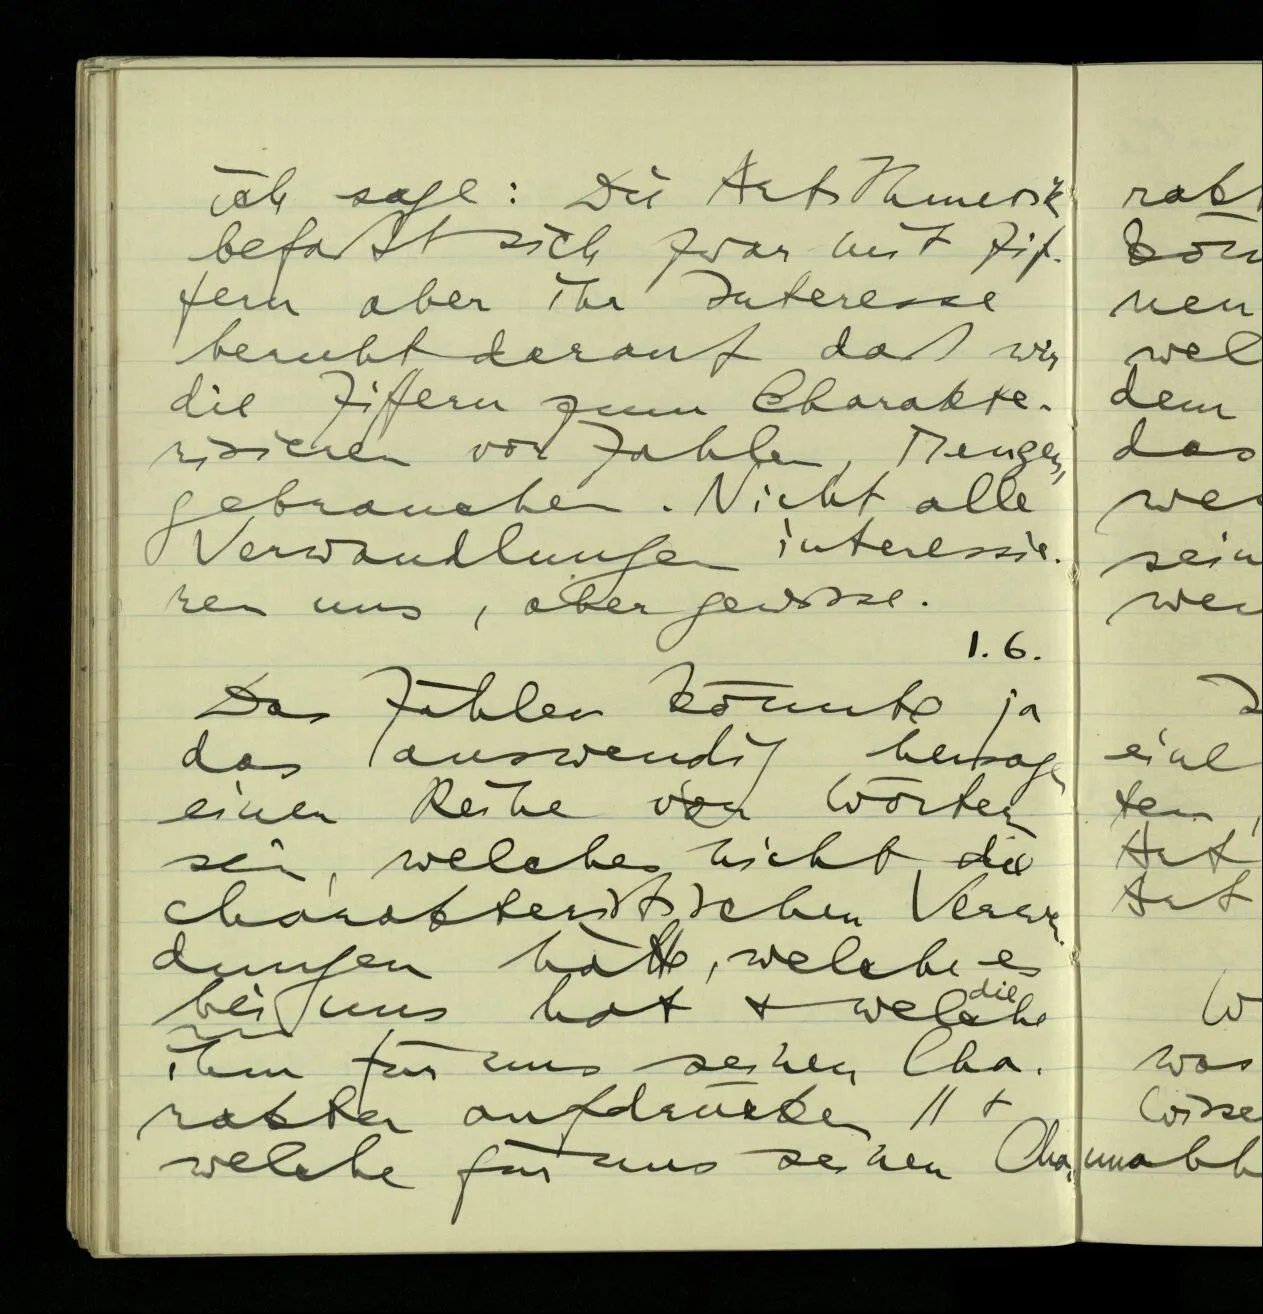 ich sage: Die Arithmetik
befaßt sich zwar mit Zif-
fern aber ihr Interesse
beruht darauf daß wir
die Ziffern zum Charakte-
risieren von Zahlen, Mengen,
gebrauchen. Nicht alle
Verwandlungen interessie-
ren uns, aber gewisse.
1.6.
Das Zählen könnte ja
das auswendig hersagen
einer Reihe von Wörtern
sein, welches nicht die
charakteristischen Verwen-
dungen hätte, welche es
bei uns hat + welche
die
ihm für uns seinen Cha-
rakter aufdrücken // +
welche für uns seinen Cha-
rakt
kön
nen
wel
dem
das
wer
sein
wer
eine
ten,
Art
Art
W
was
Wisse